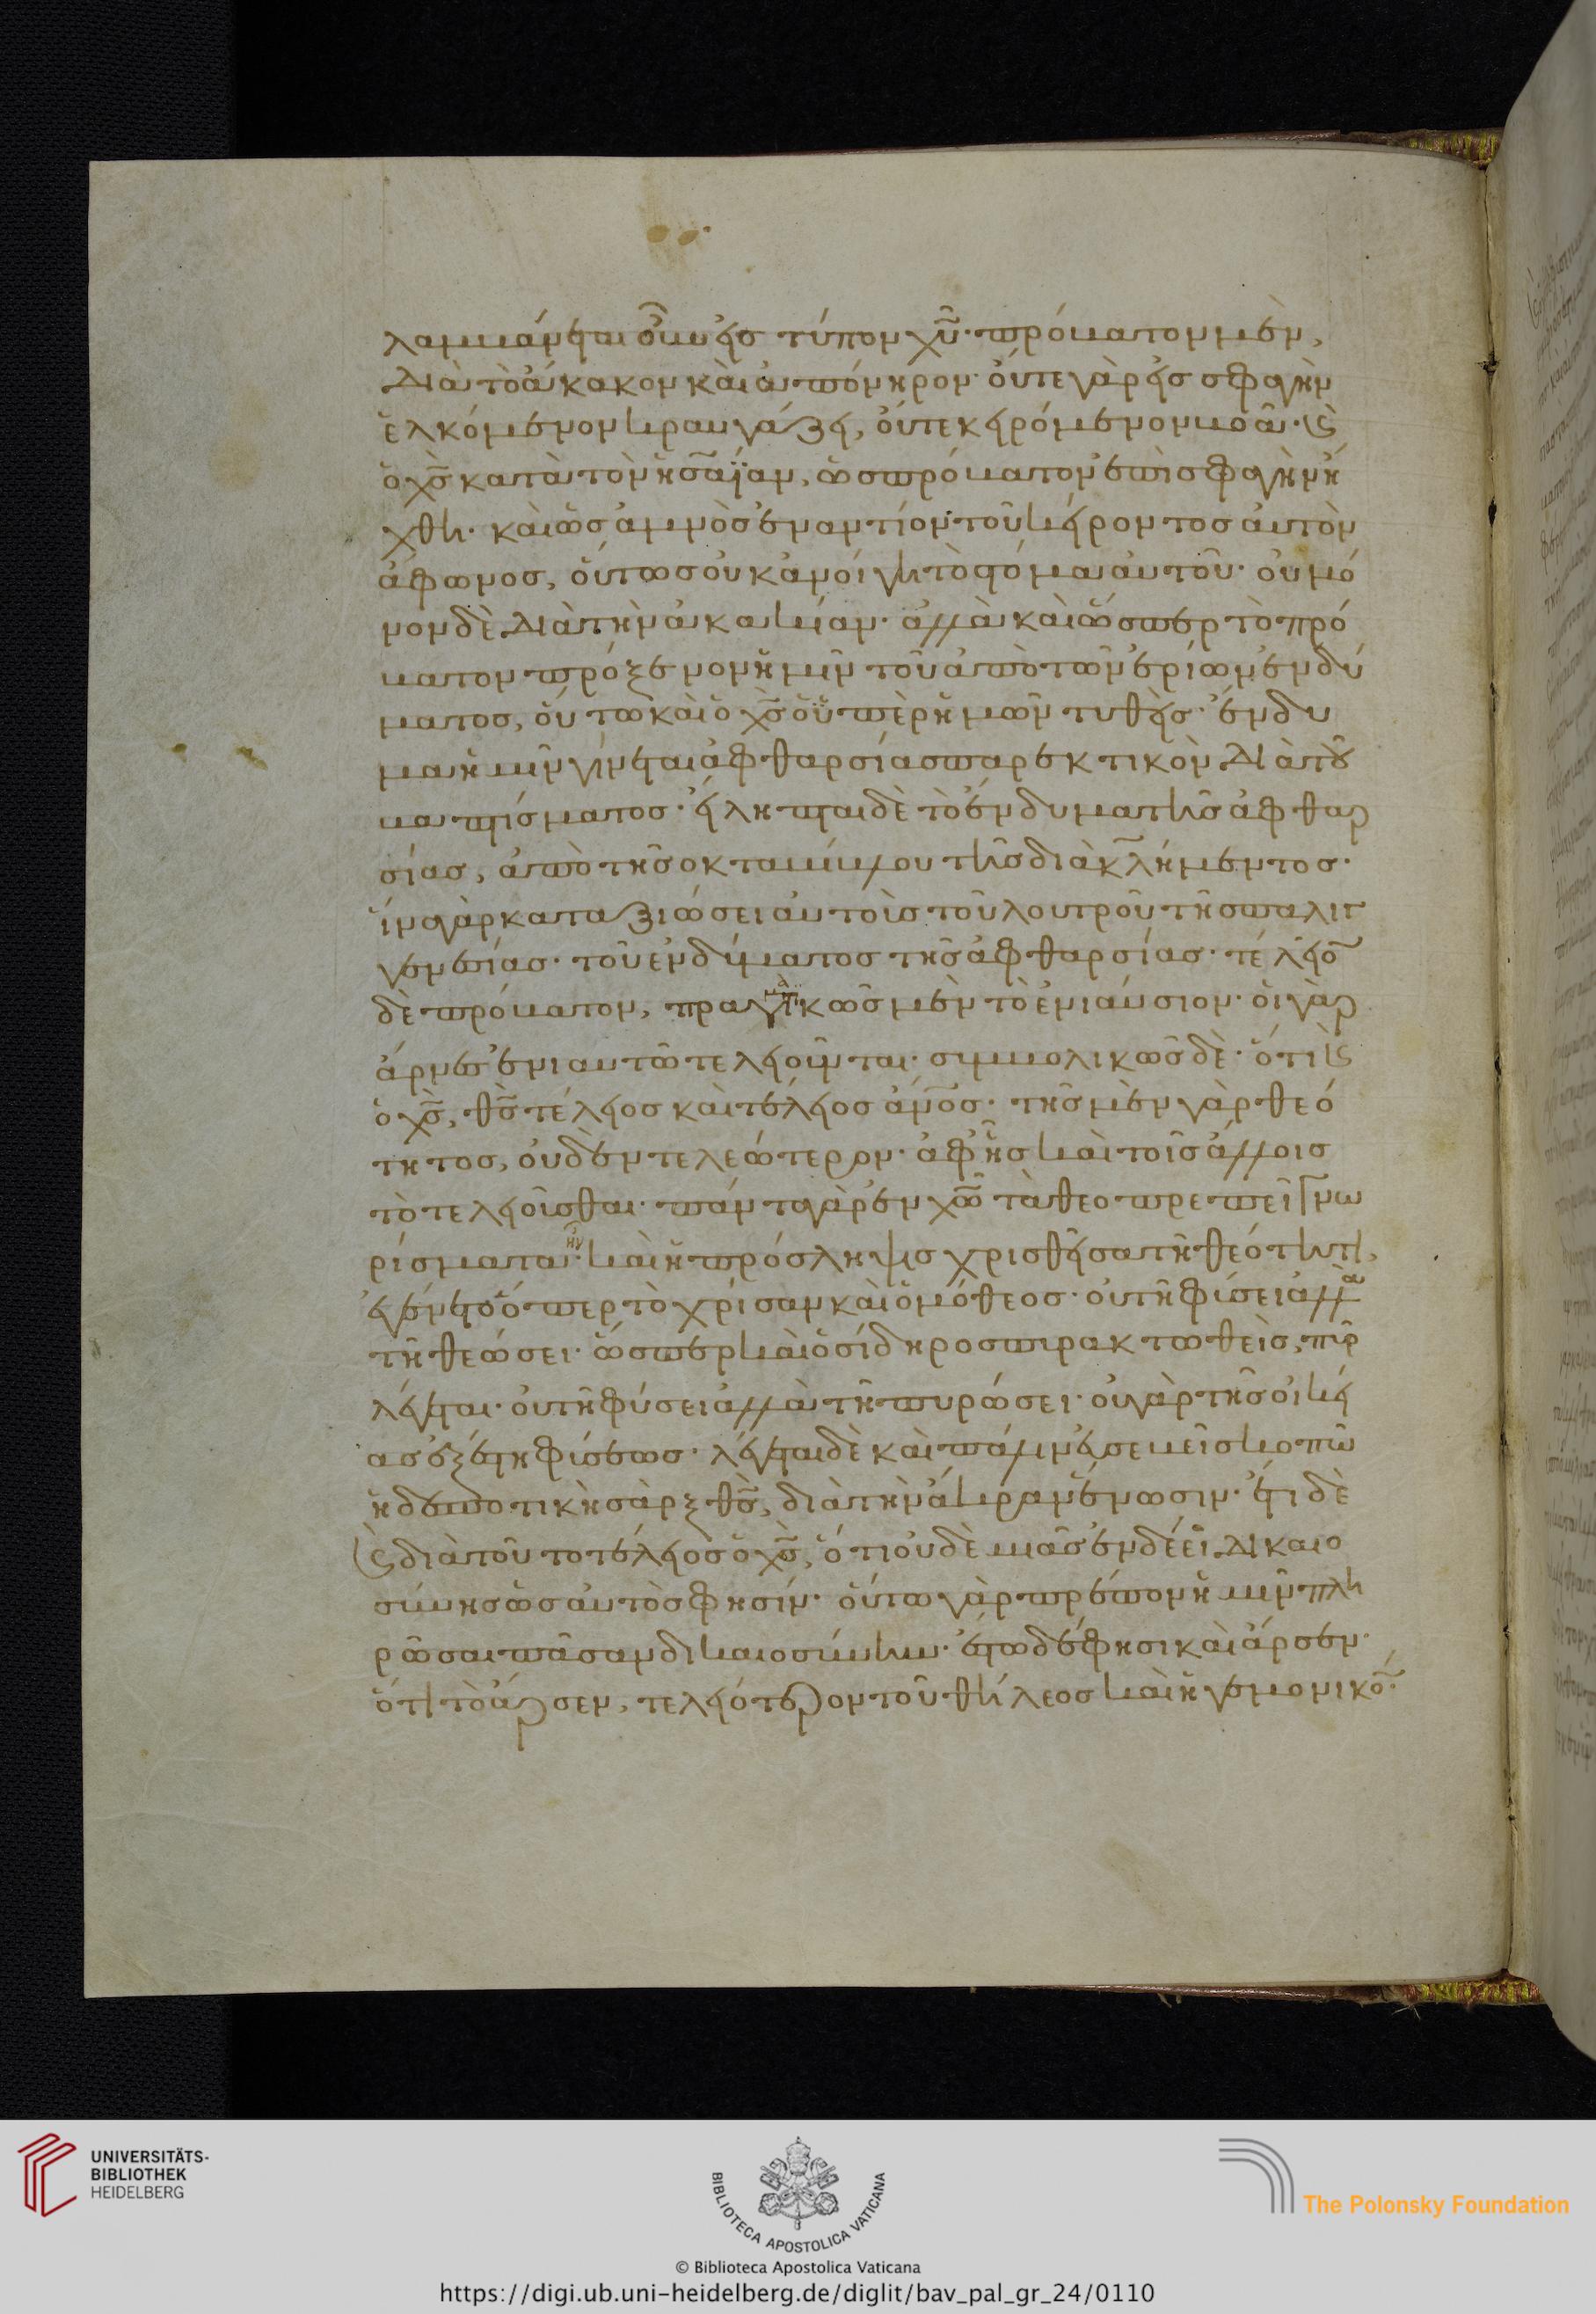 λαμβάνεται οὖν εἰς τύπον χῡ· πρόβατον μὲν,
διὰ τὸ ἄκακον καὶ ἀπόνηρον· οὔτε γὰρ εἰς σφαγὴν
ἑλκόμενον κραυγάζει, οὔτε κειρόμενον βοᾶ· καὶ
ὁ χς̄ κατὰ τὸν ἡσαΐαν, ὡς πρόβατον ἐπὶ σφαγὴν ἤ
χθη· καὶ ὡς ἀμνὸς ἐναντίον τοῦ κείροντος αὐτὸν
ἄφωνος, οὕτως οὐκ ἀνοίγει τὸ στόμα αὐτοῦ· οὐ μό
νον δὲ διὰ τὴν ἀκακίαν· ἀλλὰ καὶ ὥσπερ τὸ πρό
βατον πρόξενον ἡμῖν τοῦ ἀπὸ τῶν ἐρίων ἐνδύ
ματος, οὕτω καὶ ὁ χς̄ ὁ ὑπὲρ ἡμῶν τυθεὶς· ἔνδυ
μα ἡμῖν γίνεται ἀφθαρσίας παρεκτικὸν διὰ τοῦ
βαπτίσματος· εἴληπται δὲ τὸ ἔνδυμα τῆς ἀφθαρ
σίας, ἀπὸ τῆς ὀκταβίβλου τῆς διὰ κλήμεντος·
ἵνα γὰρ καταξιώσει αὐτοὺς τοῦ λουτροῦ τῆς παλιγ
γενεσίας· τοῦ ἐνδύματος τῆς ἀφθαρσίας· τέλειον
δὲ πρόβατον, πραγματικῶς μὲν τὸ ἐνιαύσιον· οἱ γὰρ
ἄρνες ἐνιαυτῶ τελειοῦνται· συμβολικῶς δὲ· ὅτι καὶ
ὁ χς̄, θς̄ τέλειος καὶ τέλειος ἄνος̄· τῆς μὲν γὰρ θεό
τητος, οὐδὲν τελεώτερον· ἀφ' ἧς καὶ τοῖς ἄλλοις
τὸ τελειοῦσθαι· πάντα γὰρ ἐν χῶ τὰ θεοπρεπεῖ γνω
ρίσματα ἦν· καὶ ἡ πρόσληψις χρισθεῖσα τῆ θεότητι,
ἐγένετο ὅπερ τὸ χρίσαν καὶ ὁμόθεος· οὐ τῆ φύσει ἀλλὰ
τῆ θεώσει· ὥσπερ καὶ ὁ σίδηρος πυρακτωθεὶς, πῦρ
λέγεται· οὐ τῆ φύσει ἀλλὰ τῆ πυρώσει· οὐ γὰρ τῆς οἰκεί
ας ἐξέστη φύσεως· λέγεται δὲ καὶ πάλιν εὐσεβεῖ σκοπῶ
ἡ δεσποτικὴ σὰρξ θς̄, διὰ τὴν ἄκραν ἕνωσιν· ἔτι δὲ
καὶ διὰ τοῦτο τέλειος ὁ χς̄, ὅτι οὐδὲ μιᾶς ἐνδέει δικαιο
σύνης ὡς αὐτὸς φησίν· οὕτω γὰρ πρέπον ἡμῖν πλη
ρῶσαι πᾶσαν δικαιοσύνην· ἔστω δέ φησι καὶ ἄρσεν·
ὅτι τὸ ἄρσεν, τελειότερον τοῦ θήλεος καὶ ἡγεμονικόν·
UNIVERSITÄTS-
BIBLIOTHEK
HEIDELBERG
BIBLIOTECA APOSTOLICA VATICANA
The Polonsky Foundation
© Biblioteca Apostolica Vaticana
https://digi.ub.uni-heidelberg.de/diglit/bav_pal_gr_24/0110